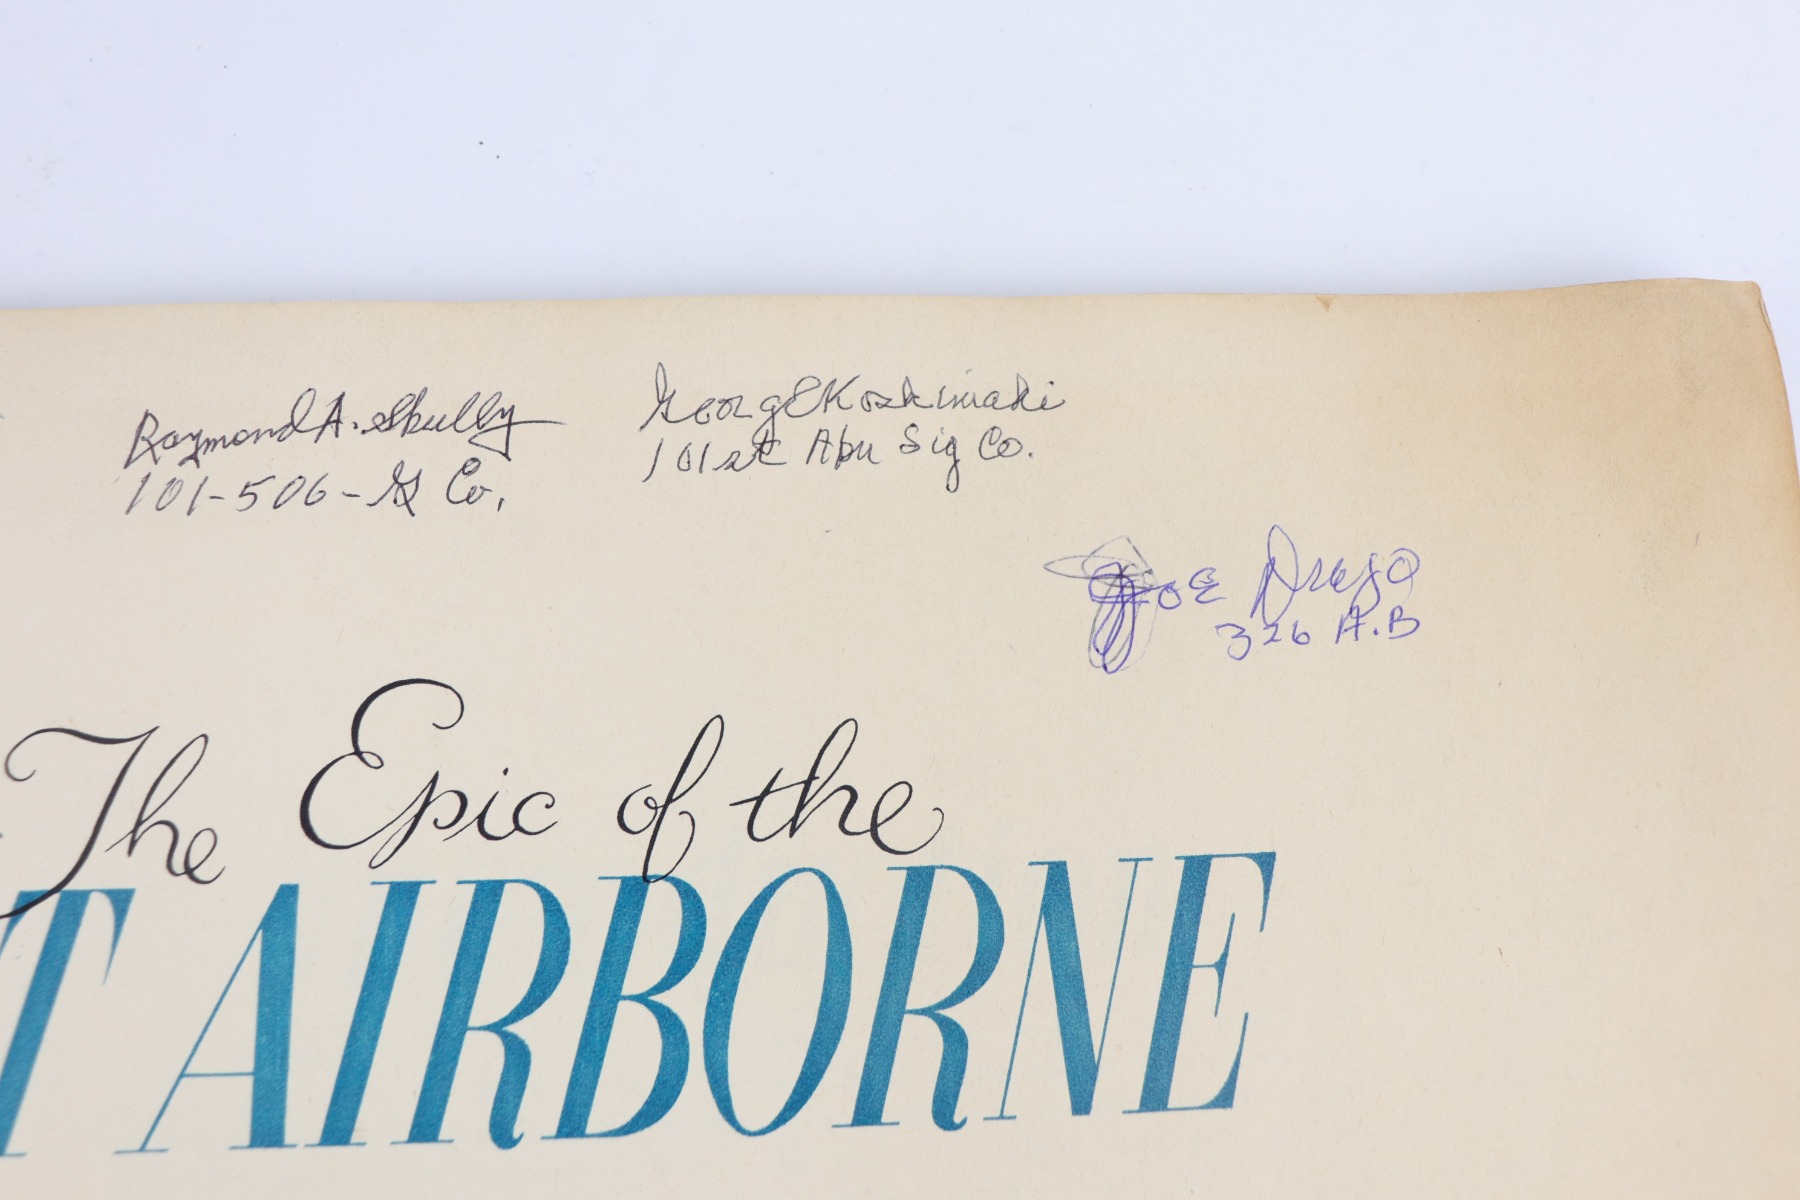 Raymond A. Skully
101-506-G Co.
George E Koskimaki
101st Abn Sig Co.
Joe Drago
326 A.B
The Epic of the
T AIRBORNE